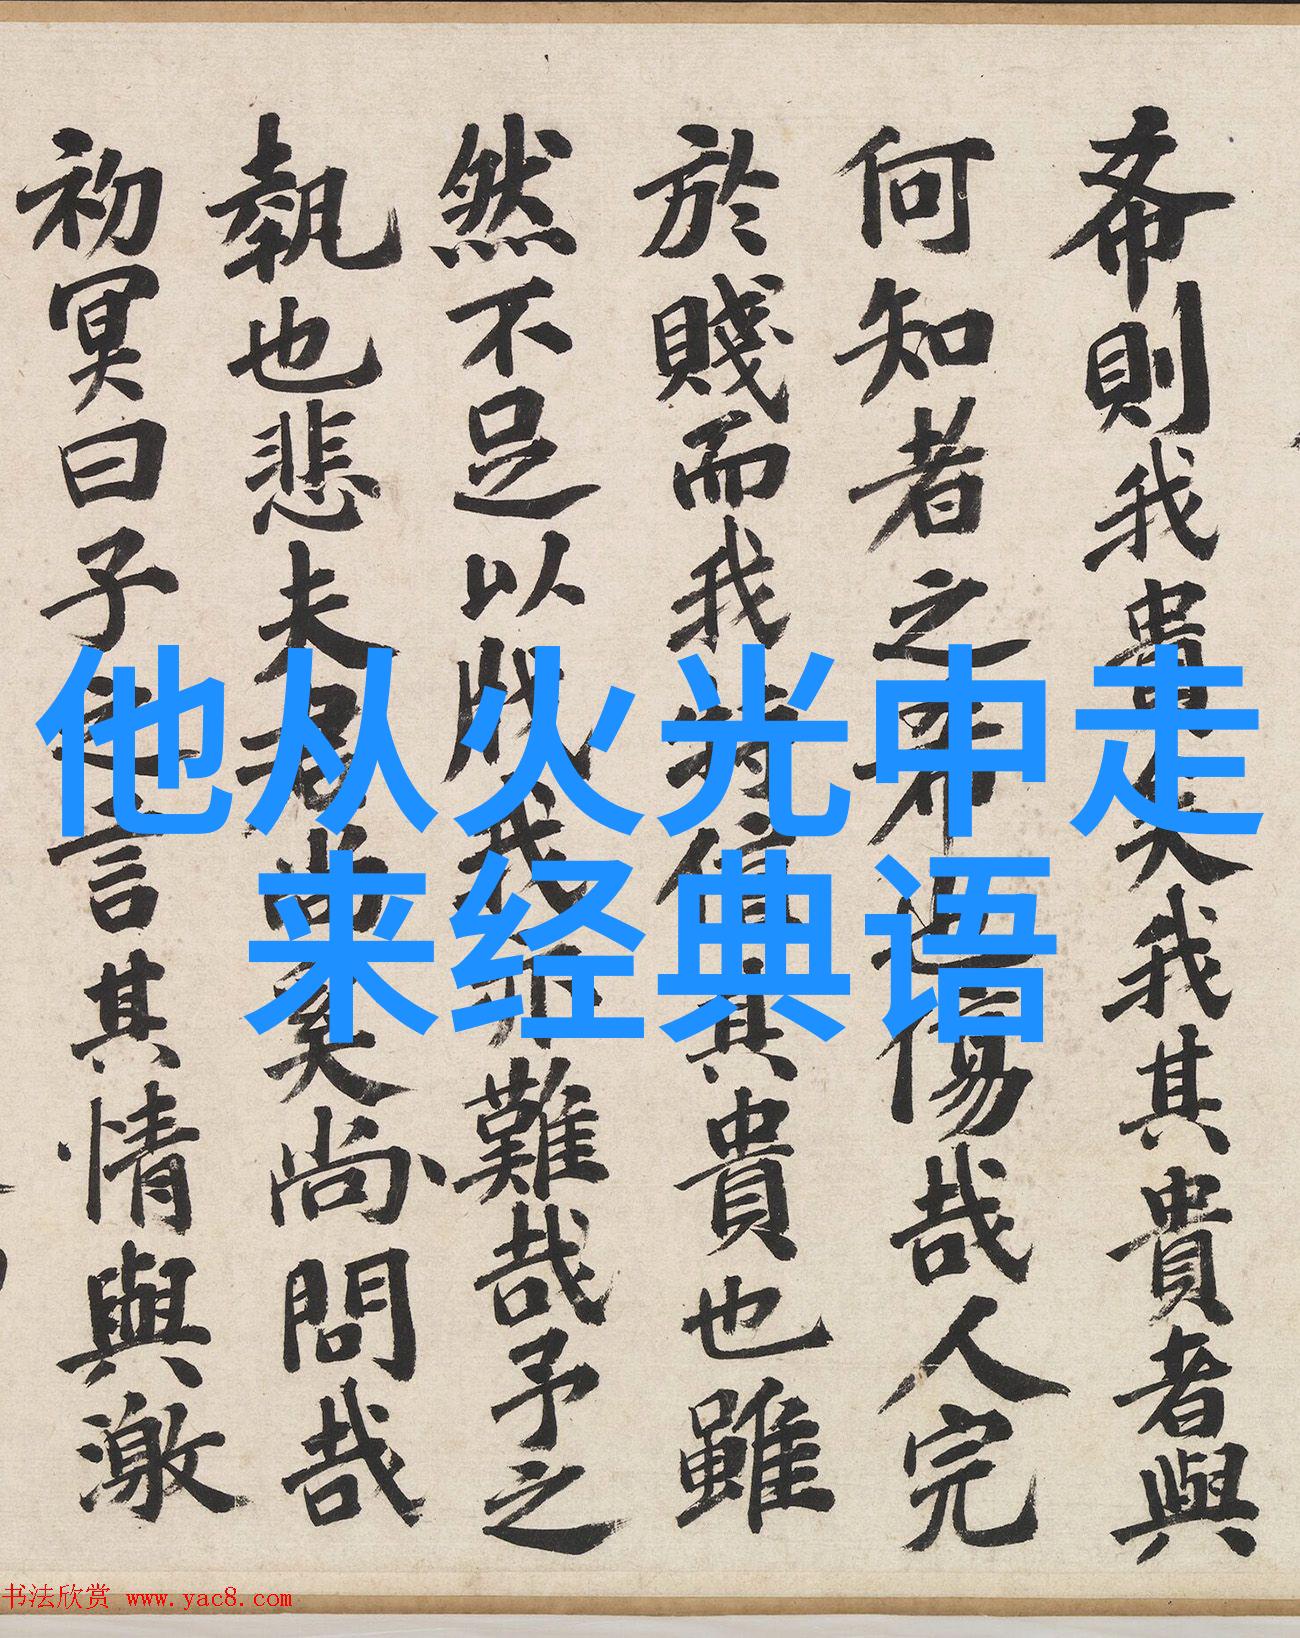 希則我貴矣我其貴者與
何知者之希也傷哉人完
於賤而我特信其貴也雖
然不足以戕我亦難哉予之
執也悲夫君尚矣尚問哉
初冥曰子之言其情與激
他从火光中走
来经典语
书法欣赏 www.yac8.com